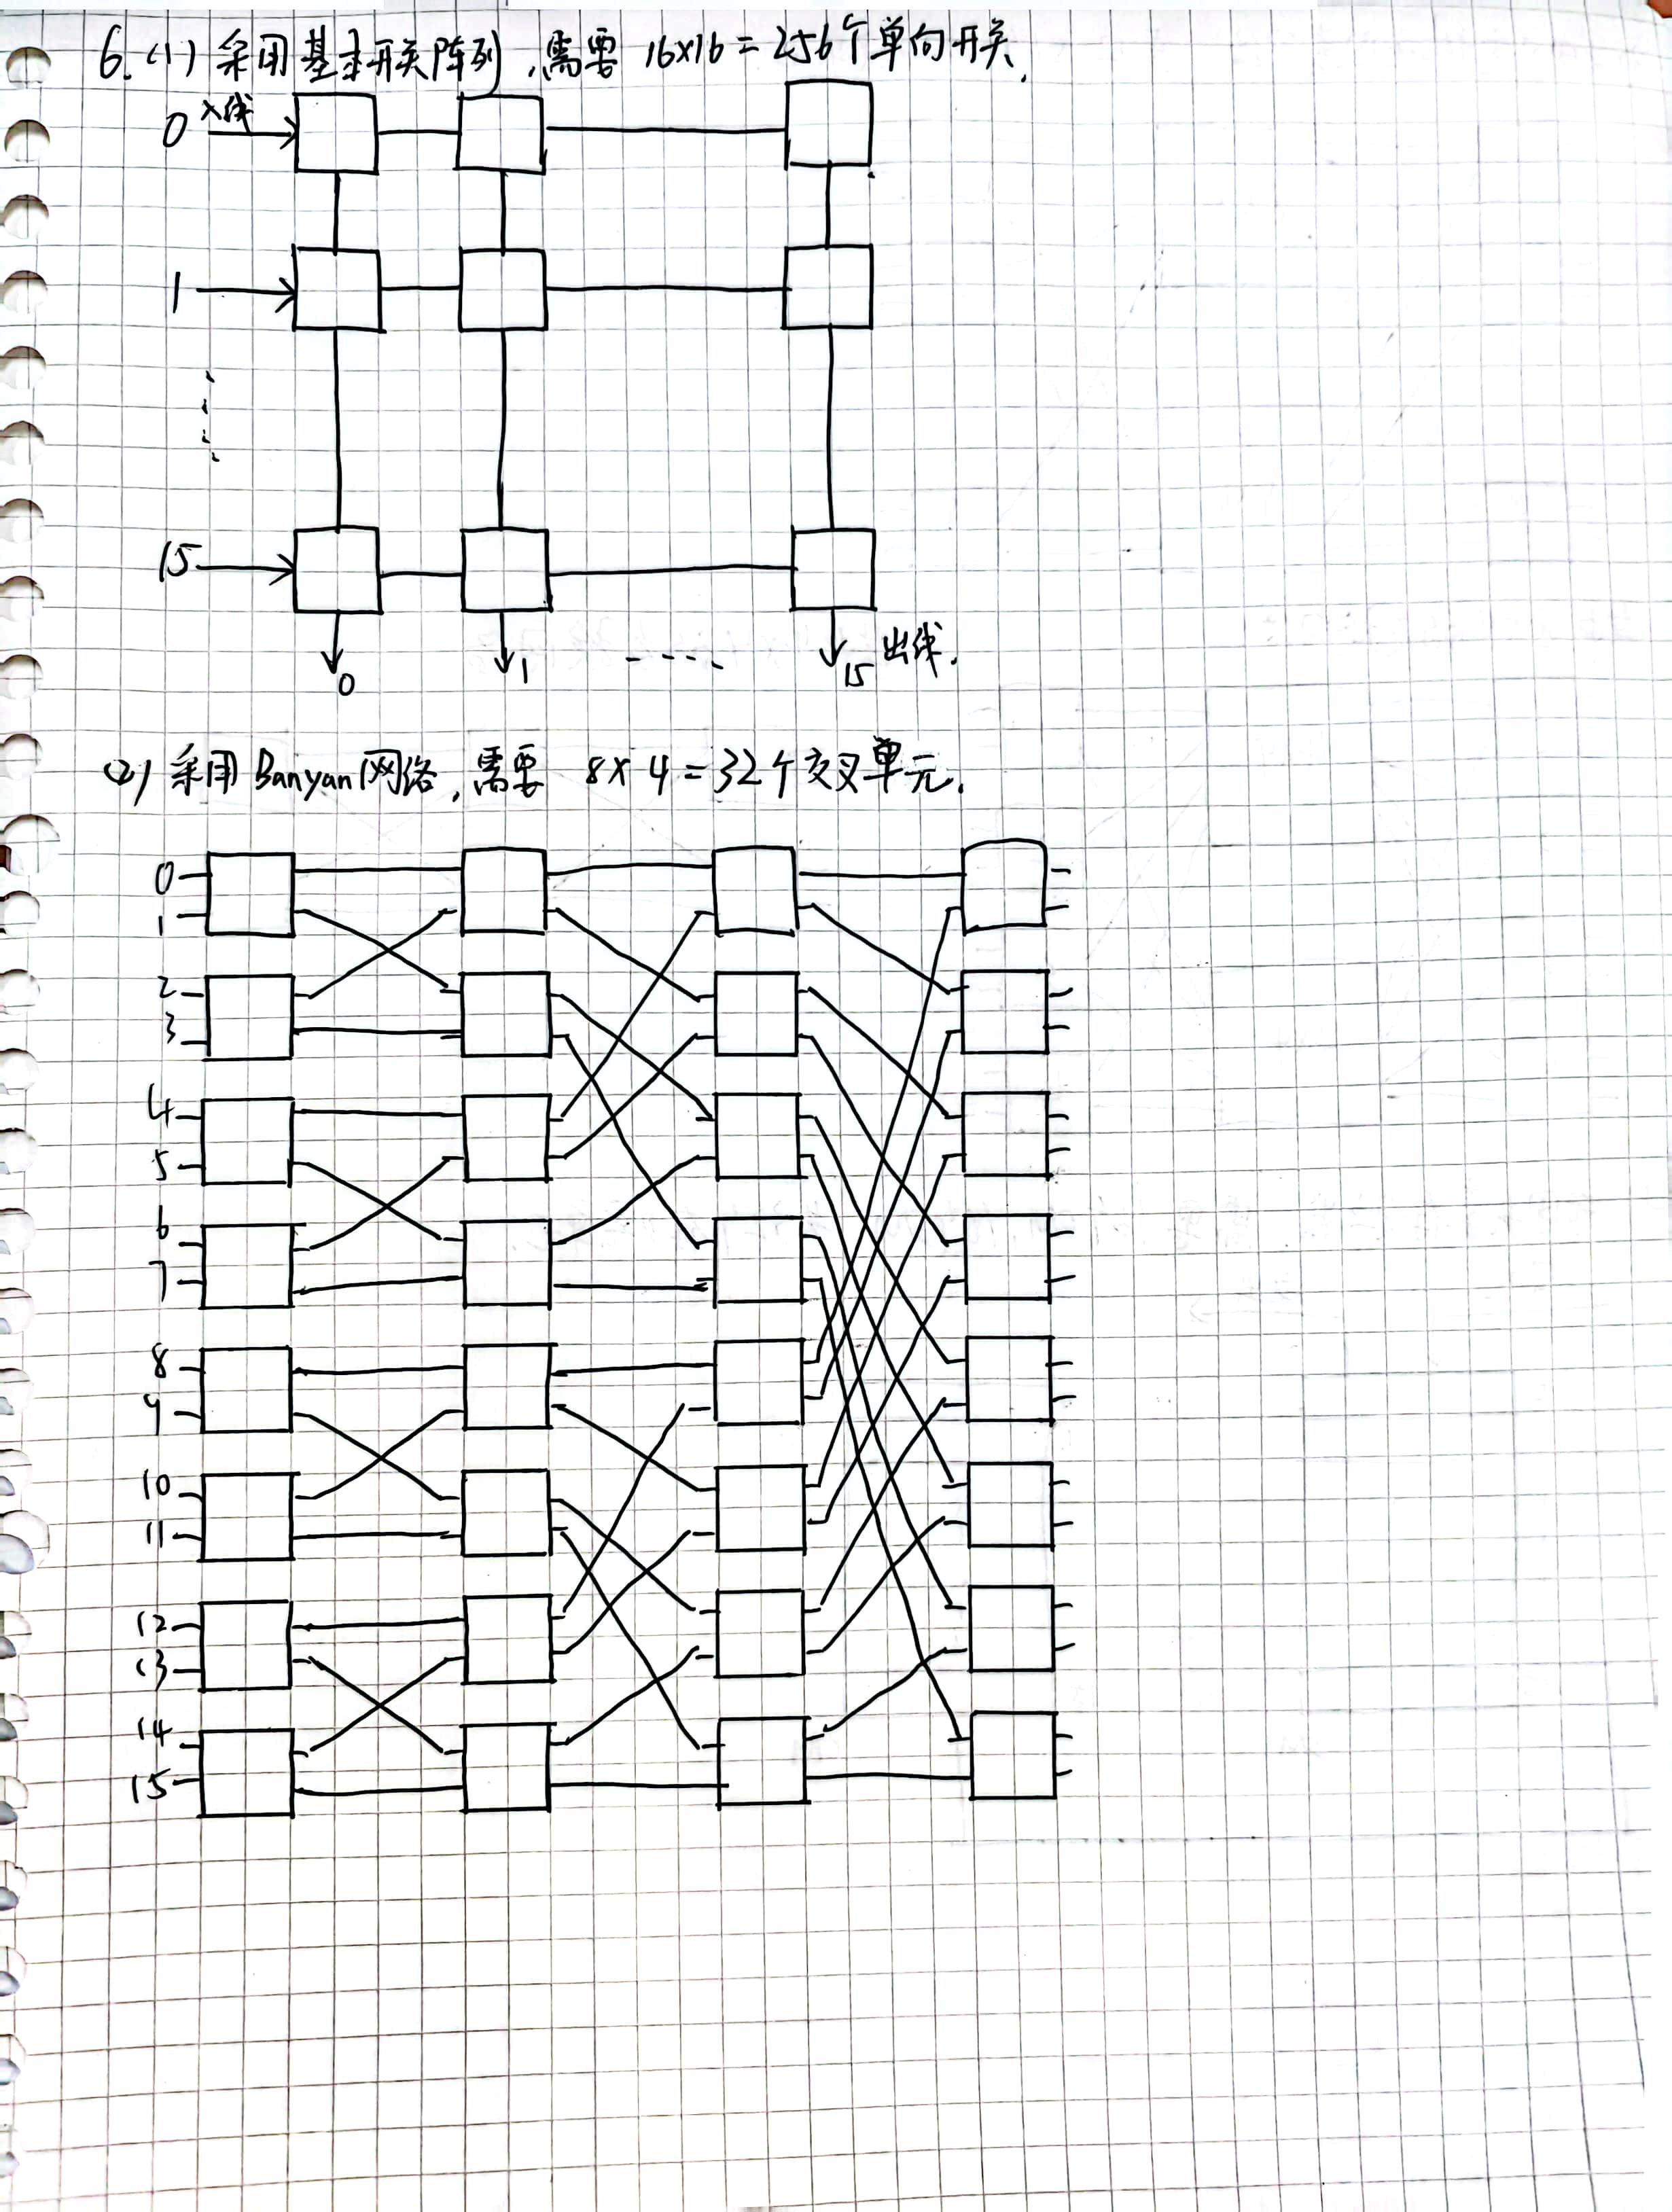 6.(1) 采用基本开关阵列,需要 16×16=256个单向开关.
0 入线
1
15
0 1 ---- 15 出线.
(2) 采用Banyan网络,需要 8×4=32个交叉单元.
0
1
2
3
4
5
6
7
8
9
10
11
12
13
14
15